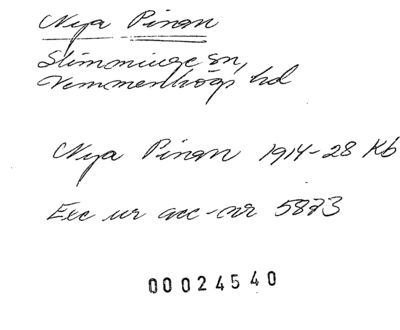 Nya Pinan
Slimminge sn,
Vemmenhögs hd
Nya Pinan 1914-28 Kb
Exc ur acc-nr 5873
00024540